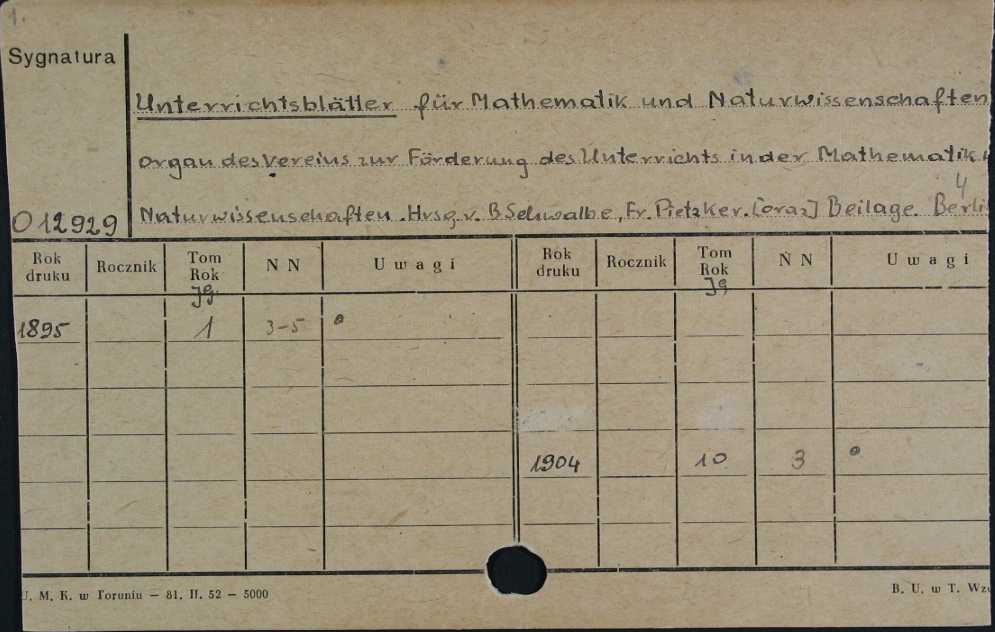 1.
Sygnatura
Unterrichtsblätter für Mathematik und Naturwissenschaften
Organ des Vereins zur Förderung des Unterrichts in der Mathematik
4
012929 Naturwissenschaften. Hrsg. v. B Schwalbe, Fr. Pietzker. [oraz] Beilage. Berli
Rok druku Rocznik Tom Rok Jg. N N Uwagi Rok druku Rocznik Tom Rok Jg N N Uwagi
1895 1 3-5
1904 10 3
U. M. K. w Toruniu — 81. II. 52 — 5000 B. U. w T. Wz